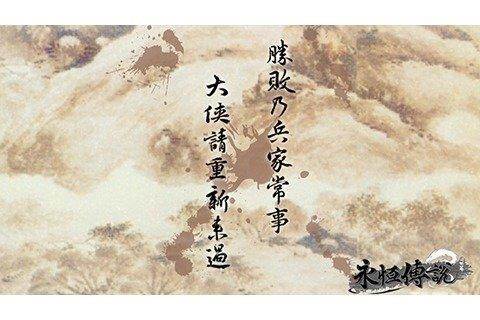 勝敗乃兵家常事
大俠請重新來過
永恒傳說